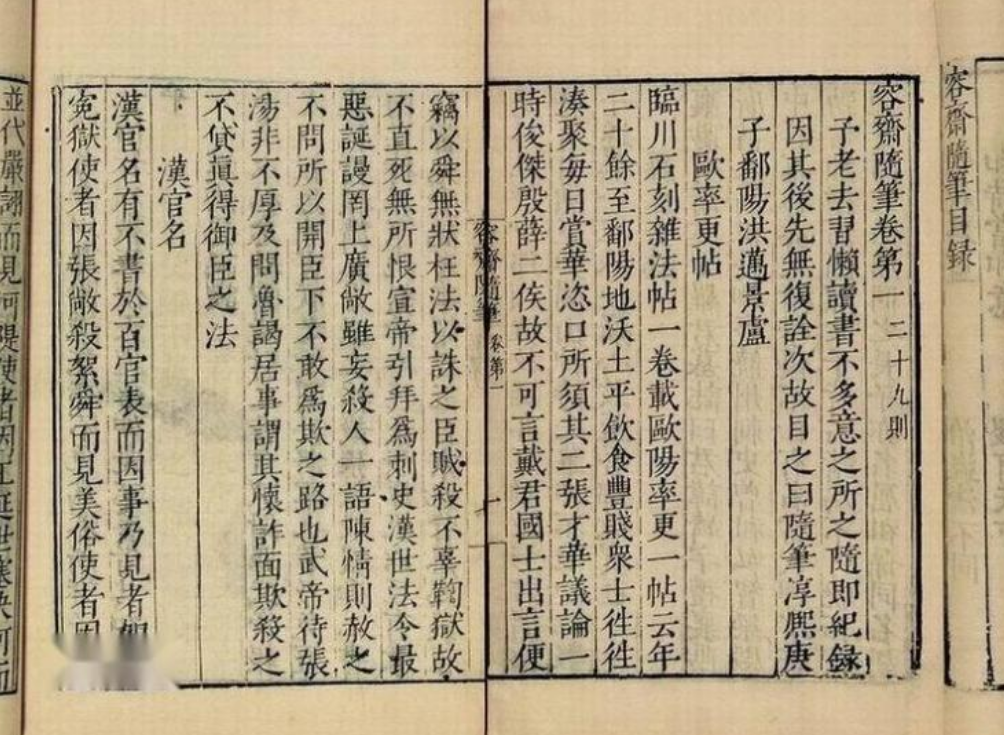 容齋隨筆目録
容齋隨筆卷第一二十九則
予老去習懶讀書不多意之所之隨即紀録
因其後先無復詮次故目之曰隨筆淳熙庚
子鄱陽洪邁景盧
歐率更帖
臨川石刻雜法帖一卷載歐陽率更一帖云年
二十餘至鄱陽地沃土平飲食豐賤衆士徃徃
湊聚毎日賞華恣口所須其二張才華議論一
時俊傑殷薛二侯故不可言戴君國士出言便
容齋隨筆 卷第一 一
竊以舜無狀枉法以誅之臣賊殺不辜鞫獄故
不直死無所恨宣帝引拜爲刺史漢世法令最
惡誕謾罔上廣敞雖妄殺人一語陳情則赦之
不問所以開臣下不敢爲欺之路也武帝待張
湯非不厚及問魯謁居事謂其懷詐面欺殺之
不貸眞得御臣之法
漢官名
漢官名有不書於百官表而因事乃見者如
寃獄使者因張敞殺絮舜而見美俗使者因
並代嚴詡而見河隄使者因王延世塞決河而